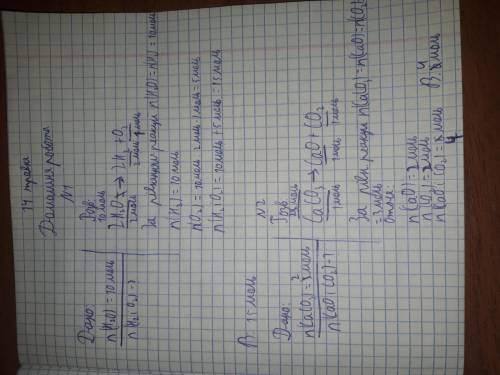 14 травня
Домашня робота
N1
Дано:
n(H₂O) = 10 моль
n(H₂; O₂) - ?
Розв.
10 моль
2H₂O → 2H₂ + O₂
2 моль 2 моль 1 моль
За рівнянням реакції n(H₂O) = n(H₂) = 10 моль
n(H₂) = 10 моль
n(O₂) = 10 моль : 2 моль · 1 моль = 5 моль
n(H₂; O₂) = 10 моль + 5 моль = 15 моль
В: 15 моль
N2
Дано:
n(CaCO₃) = 2 моль
n(CaO; CO₂) - ?
Розв.
CaCO₃ → CaO + CO₂
1 моль 1 моль 1 моль
За рівн. реакції n(CaCO₃) = n(CaO) = n(CO₂)
n(CaO) = 2 моль
n(CO₂) = 2 моль
n(CaO; CO₂) = 4 моль
В: 4 моль